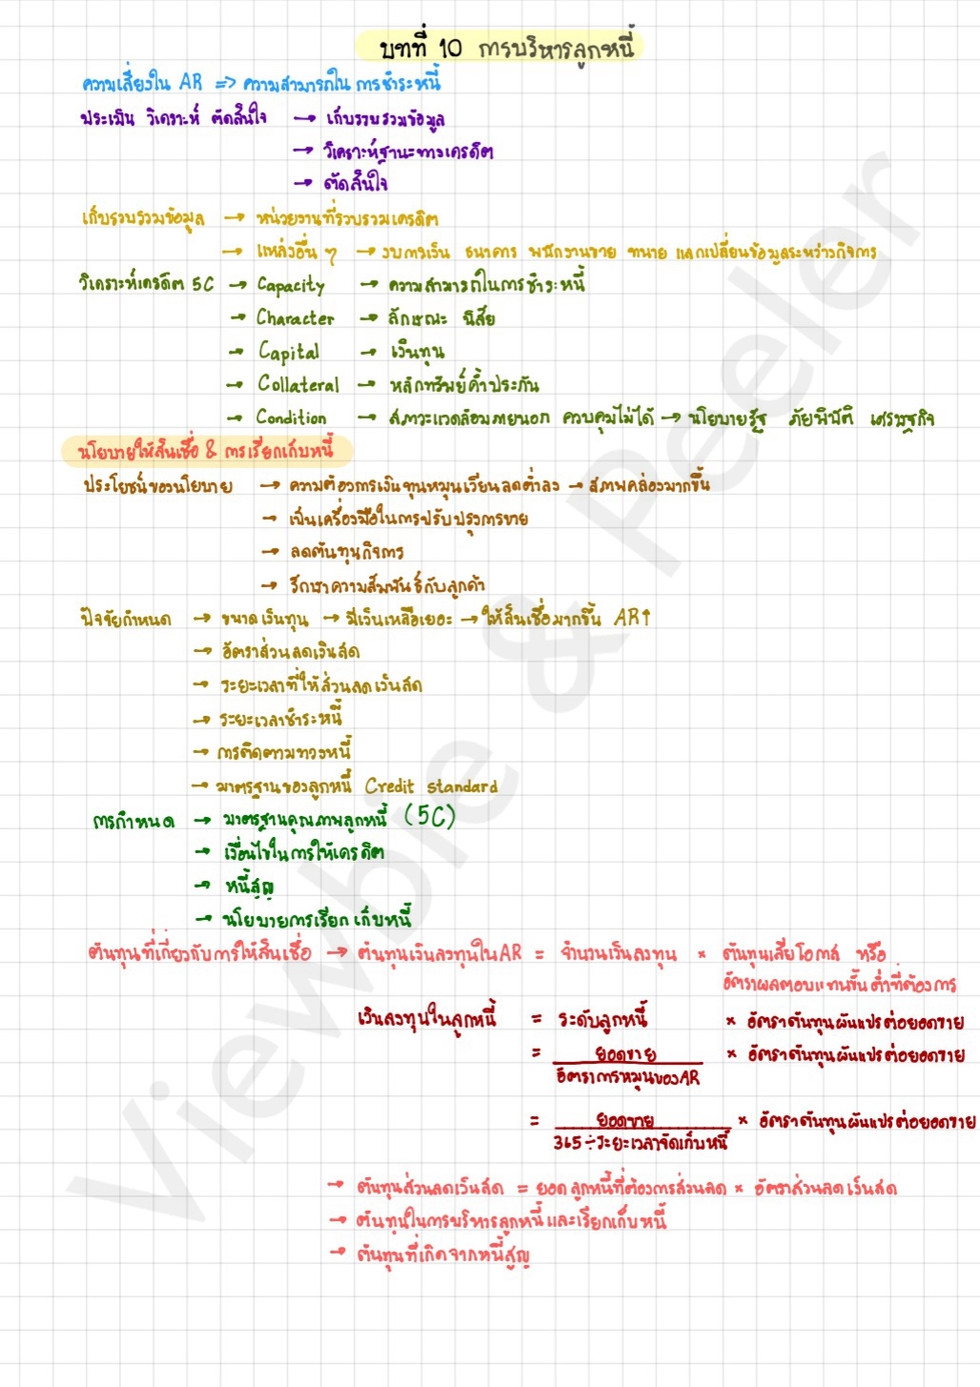 บทที่ 10 การบริหารลูกหนี้
ความเสี่ยงใน AR => ความสามารถใน การชำระหนี้
ประเมิน วิเคราะห์ ตัดสินใจ → เก็บรวบรวมข้อมูล
→ วิเคราะห์ฐานะทางเครดิต
→ ตัดสินใจ
เก็บรวบรวมข้อมูล → หน่วยงานที่รวบรวมเครดิต
→ แหล่งอื่น ๆ → งบการเงิน ธนาคาร พนักงานขาย ทนาย แลกเปลี่ยนข้อมูลระหว่างกิจการ
วิเคราะห์เครดิต 5C → Capacity → ความสามารถในการชำระหนี้
→ Character → ลักษณะ นิสัย
→ Capital → เงินทุน
→ Collateral → หลักทรัพย์ค้ำประกัน
→ Condition → สภาวะแวดล้อมภายนอก ควบคุมไม่ได้ → นโยบายรัฐ ภัยพิบัติ เศรษฐกิจ
นโยบายให้สินเชื่อ & การเรียกเก็บหนี้
ประโยชน์ของนโยบาย → ความต้องการเงินทุนหมุนเวียนลดต่ำลง → สภาพคล่องมากขึ้น
→ เป็นเครื่องมือในการปรับปรุงการขาย
→ ลดต้นทุนกิจการ
→ รักษาความสัมพันธ์กับลูกค้า
ปัจจัยกำหนด → ขนาดเงินทุน → มีเงินเหลือเยอะ → ให้สินเชื่อมากขึ้น AR↑
→ อัตราส่วนลดเงินสด
→ ระยะเวลาที่ให้ส่วนลดเงินสด
→ ระยะเวลาชำระหนี้
→ การติดตามทวงหนี้
→ มาตรฐานของลูกหนี้ Credit standard
การกำหนด → มาตรฐานคุณภาพลูกหนี้ (5C)
→ เงื่อนไขในการให้เครดิต
→ หนี้สูญ
→ นโยบายการเรียกเก็บหนี้
ต้นทุนที่เกี่ยวกับการให้สินเชื่อ → ต้นทุนเงินลงทุนใน AR = จำนวนเงินลงทุน × ต้นทุนเสียโอกาส หรือ
อัตราผลตอบแทนขั้นต่ำที่ต้องการ
เงินลงทุนในลูกหนี้ = ระดับลูกหนี้ × อัตราต้นทุนผันแปรต่อยอดขาย
= ยอดขาย × อัตราต้นทุนผันแปรต่อยอดขาย
อัตราการหมุนของAR
= ยอดขาย × อัตราต้นทุนผันแปรต่อยอดขาย
365÷ระยะเวลาจัดเก็บหนี้
→ ต้นทุนส่วนลดเงินสด = ยอดลูกหนี้ที่ต้องการส่วนลด × อัตราส่วนลดเงินสด
→ ต้นทุนในการบริหารลูกหนี้และเรียกเก็บหนี้
→ ต้นทุนที่เกิดจากหนี้สูญ
Viewbie & Peeler